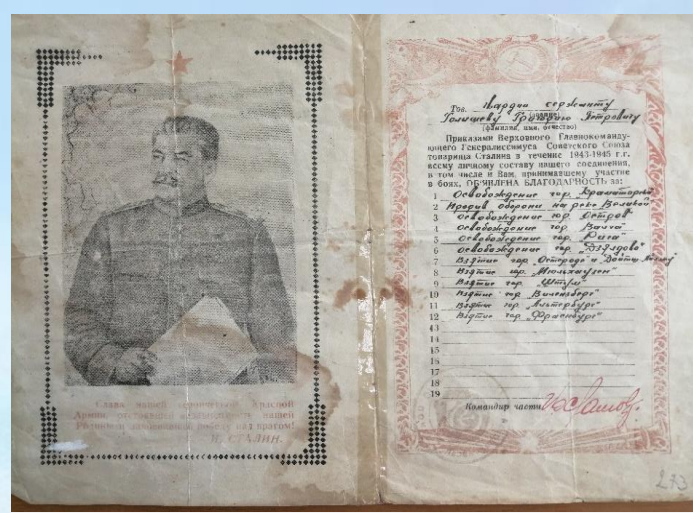 Слава нашей
Красной
Армии,
нашей
Родины
победу над врагом!
И. СТАЛИН.
Тов. Гвардии сержанту
(звание)
Голишеву Григорию Петровичу
(фамилия, имя, отчество)
Приказами Верховного Главнокоманду-
ющего Генералиссимуса Советского Союза
товарища Сталина в течение 1943-1945 г.г.
всему личному составу нашего соединения,
в том числе и Вам, принимавшему участие
в боях, ОБ'ЯВЛЕНА БЛАГОДАРНОСТЬ за:
1 Освобождение гор. „Краматорск"
2 Прорыв обороны на реке Великой
3 Освобождение гор. „Остров"
4 Освобождение гор „Валга"
5 Освобождение гор. „Рига"
6 Освобождение гор. „Дзялдово"
7 Взятие гор. „Остероде" и „Дойтш
8 Взятие гор. „Мюльхаузен"
9 Взятие гор. „Штум"
10 Взятие гор „Вилленберг"
11 Взятие гор „Альтенбург"
12 Взятие гор „Фрауенбург"
13
14
15
16
17
18
19
Командир части
273